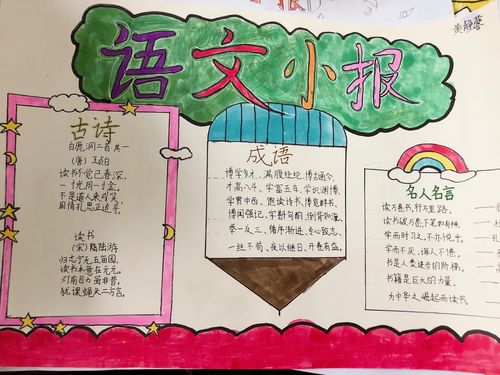 语文小报
古诗
白鹿洞二首 其一
(唐) 王贞白
读书不觉已春深,
一寸光阴一寸金。
不是道人来引笑,
周情孔思正追寻。
读书
(宋) 陆游
归志宁无五亩园,
读书本意在元元。
灯前目力虽非昔,
犹课蝇头二万言。
成语
博学多才、满腹经纶、博古通今、
才高八斗、学富五车、学识渊博、
学贯中西、饱读诗书、博览群书、
博闻强记、字斟句酌、倒背如流、
举一反三、循序渐进、专心致志、
一丝不苟、夜以继日、开卷有益。
名人名言
读万卷书,行万里路。
读书破万卷,下笔如有神。
学而时习之,不亦说乎。
学而不厌,诲人不倦。
书是人类进步的阶梯。
书籍是巨大的力量。
为中华之崛起而读书